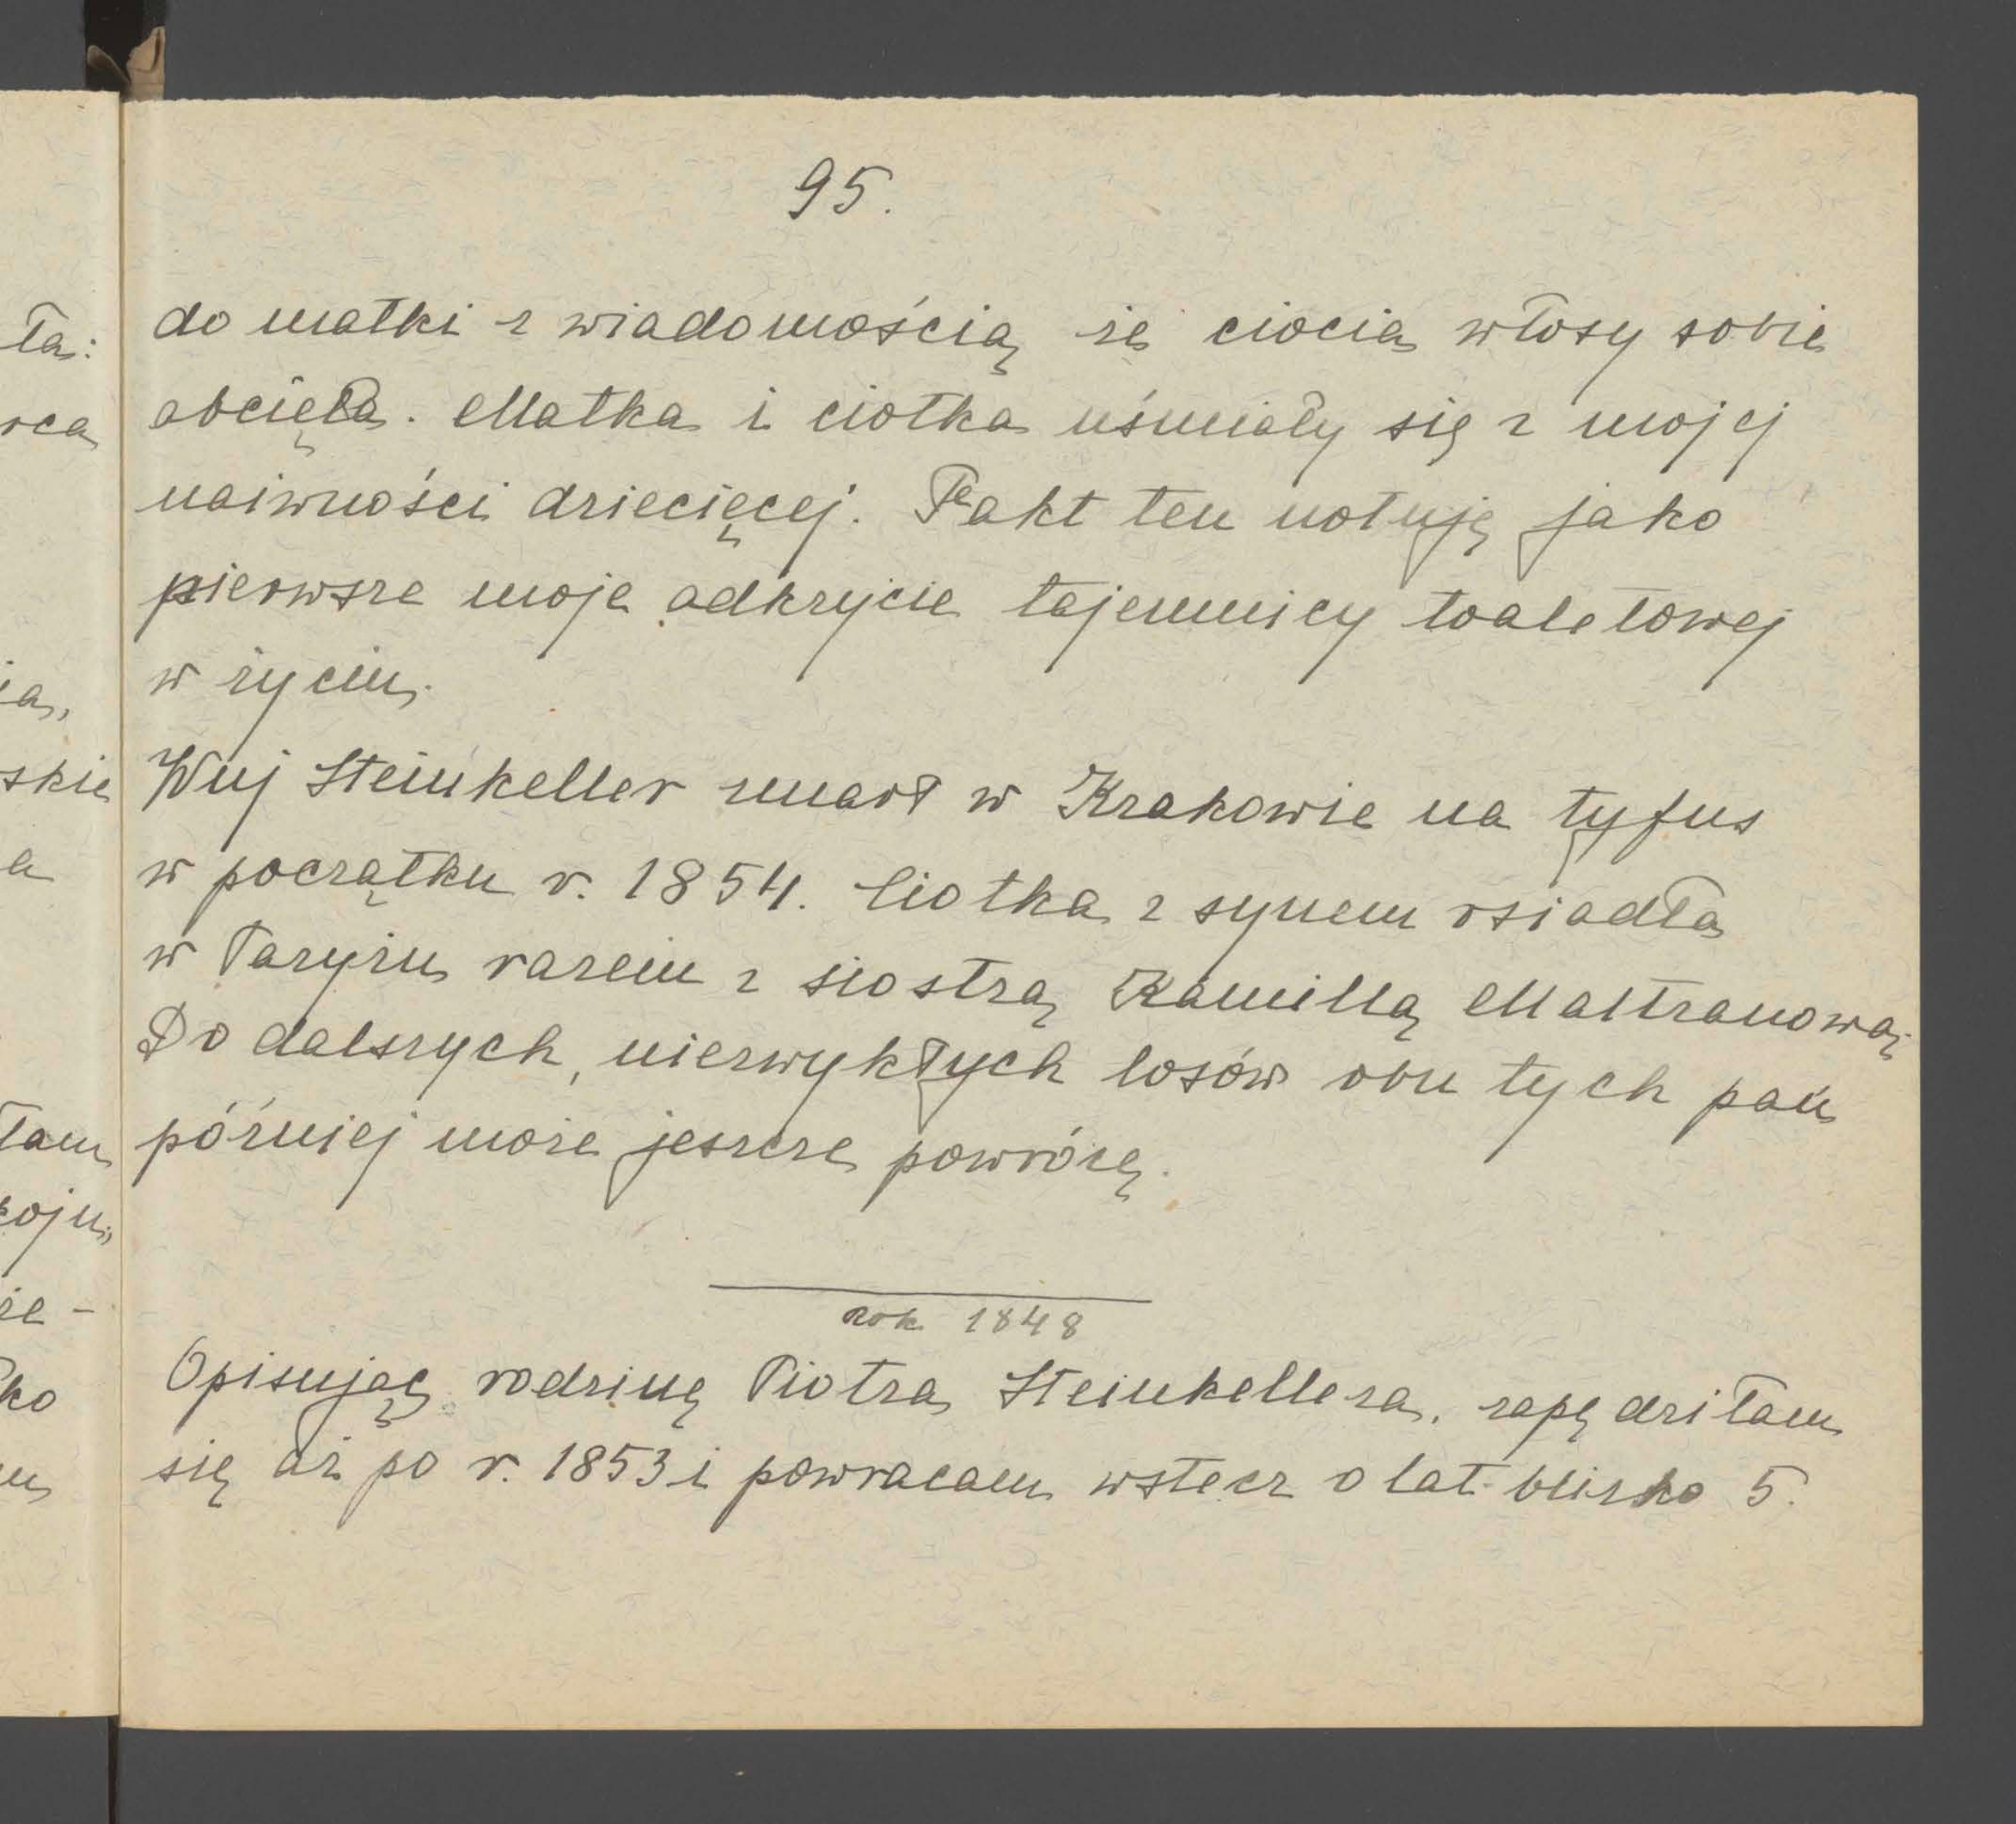 95.
do matki z wiadomością że ciocia włosy sobie
obcięła. Matka i ciotka uśmiały się z mojej
naiwności dziecięcej. Fakt ten notuję jako
pierwsze moje odkrycie tajemnicy toaletowej
w życiu.
Wuj Steinkeller zmarł w Krakowie na tyfus
w początku r. 1854. Ciotka z synem osiadła
w Paryżu razem z siostrą Kamillą Maltzanową.
Do dalszych, niezwykłych losów obu tych pań
później może jeszcze powrócę.
rok 1848
Opisując rodzinę Piotra Steinkellera, zapędziłam
się aż po r. 1853 i powracam wstecz o lat blisko 5.
ła:
rca
ia,
skie
a
łam
koju,
że -
ko
m